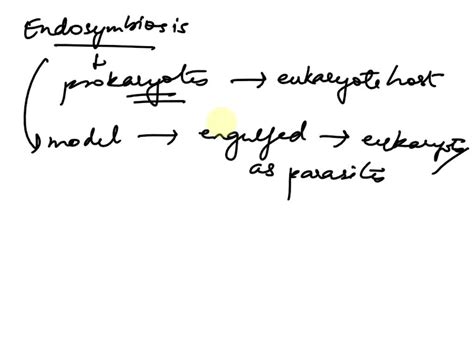 Endosymbiosis
prokaryotes → eukaryote host
model → engulfed → eukaryote
as parasite